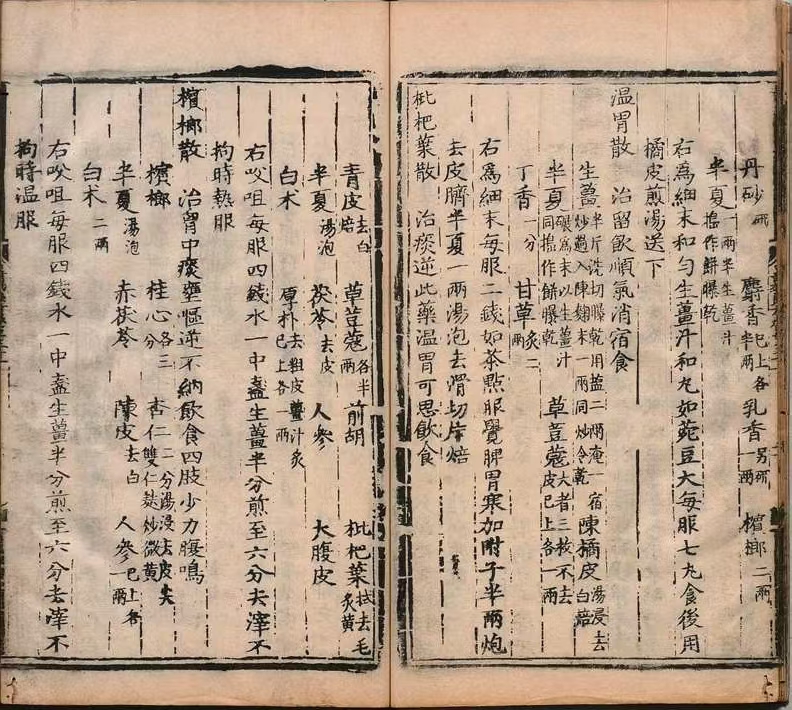 丹砂研 麝香已上各半兩 乳香另研一兩 檳榔二兩
半夏一兩半生薑汁搗作餅曝乾
右為細末和勻生薑汁和丸如菉豆大每服七丸食後用
橘皮煎湯送下
温胃散 治留飲順氣消宿食
生薑半斤洗切曝乾用鹽二兩淹一宿炒過入陳麹末一兩同炒令乾 陳橘皮湯浸去白焙
半夏碾為末以生薑汁同搗作餅曝乾 草荳蔻大者三枚不去皮已上各一兩
丁香一分 甘草炙二兩
右為細末每服二錢如茶點服覺脾胃寒加附子半兩炮
去皮臍半夏一兩湯泡去滑切片焙
枇杷葉散 治痰逆此藥温胃可思飲食
青皮去白焙 草荳蔻各半兩 前胡 枇杷葉拭去毛炙黃
半夏湯泡 茯苓去皮 人參 大腹皮
白术 厚朴去粗皮薑汁炙已上各一兩
右㕮咀每服四錢水一中盞生薑半分煎至六分去滓不
拘時熱服
檳榔散 治胃中痰壅嘔逆不納飲食四肢少力腹鳴
檳榔 桂心各三分 杏仁二分湯浸去皮尖雙仁麩炒微黃
半夏湯泡 赤茯苓 陳皮去白 人參已上各一兩
白术二兩
右㕮咀每服四錢水一中盞生薑半分煎至六分去滓不
拘時温服